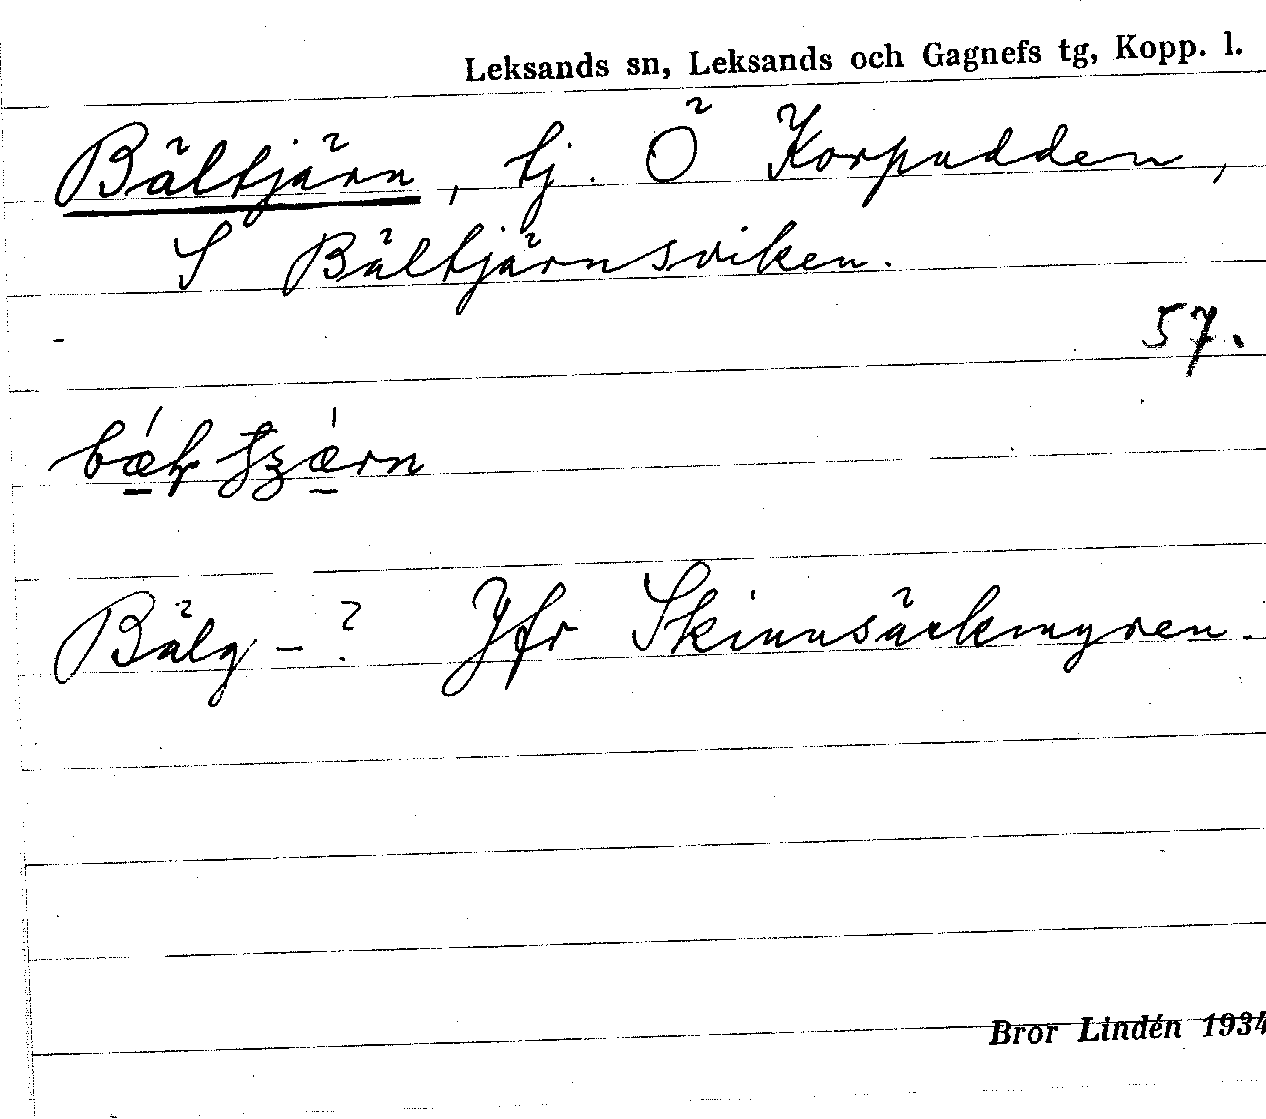 Leksands sn, Leksands och Gagnefs tg, Kopp. l.
Bältjärn, tj. Ö Korpudden,
S Bältjärnsviken.
57.
Bälg-? Jfr Skinnsäckmyren.
Bror Lindén 1934